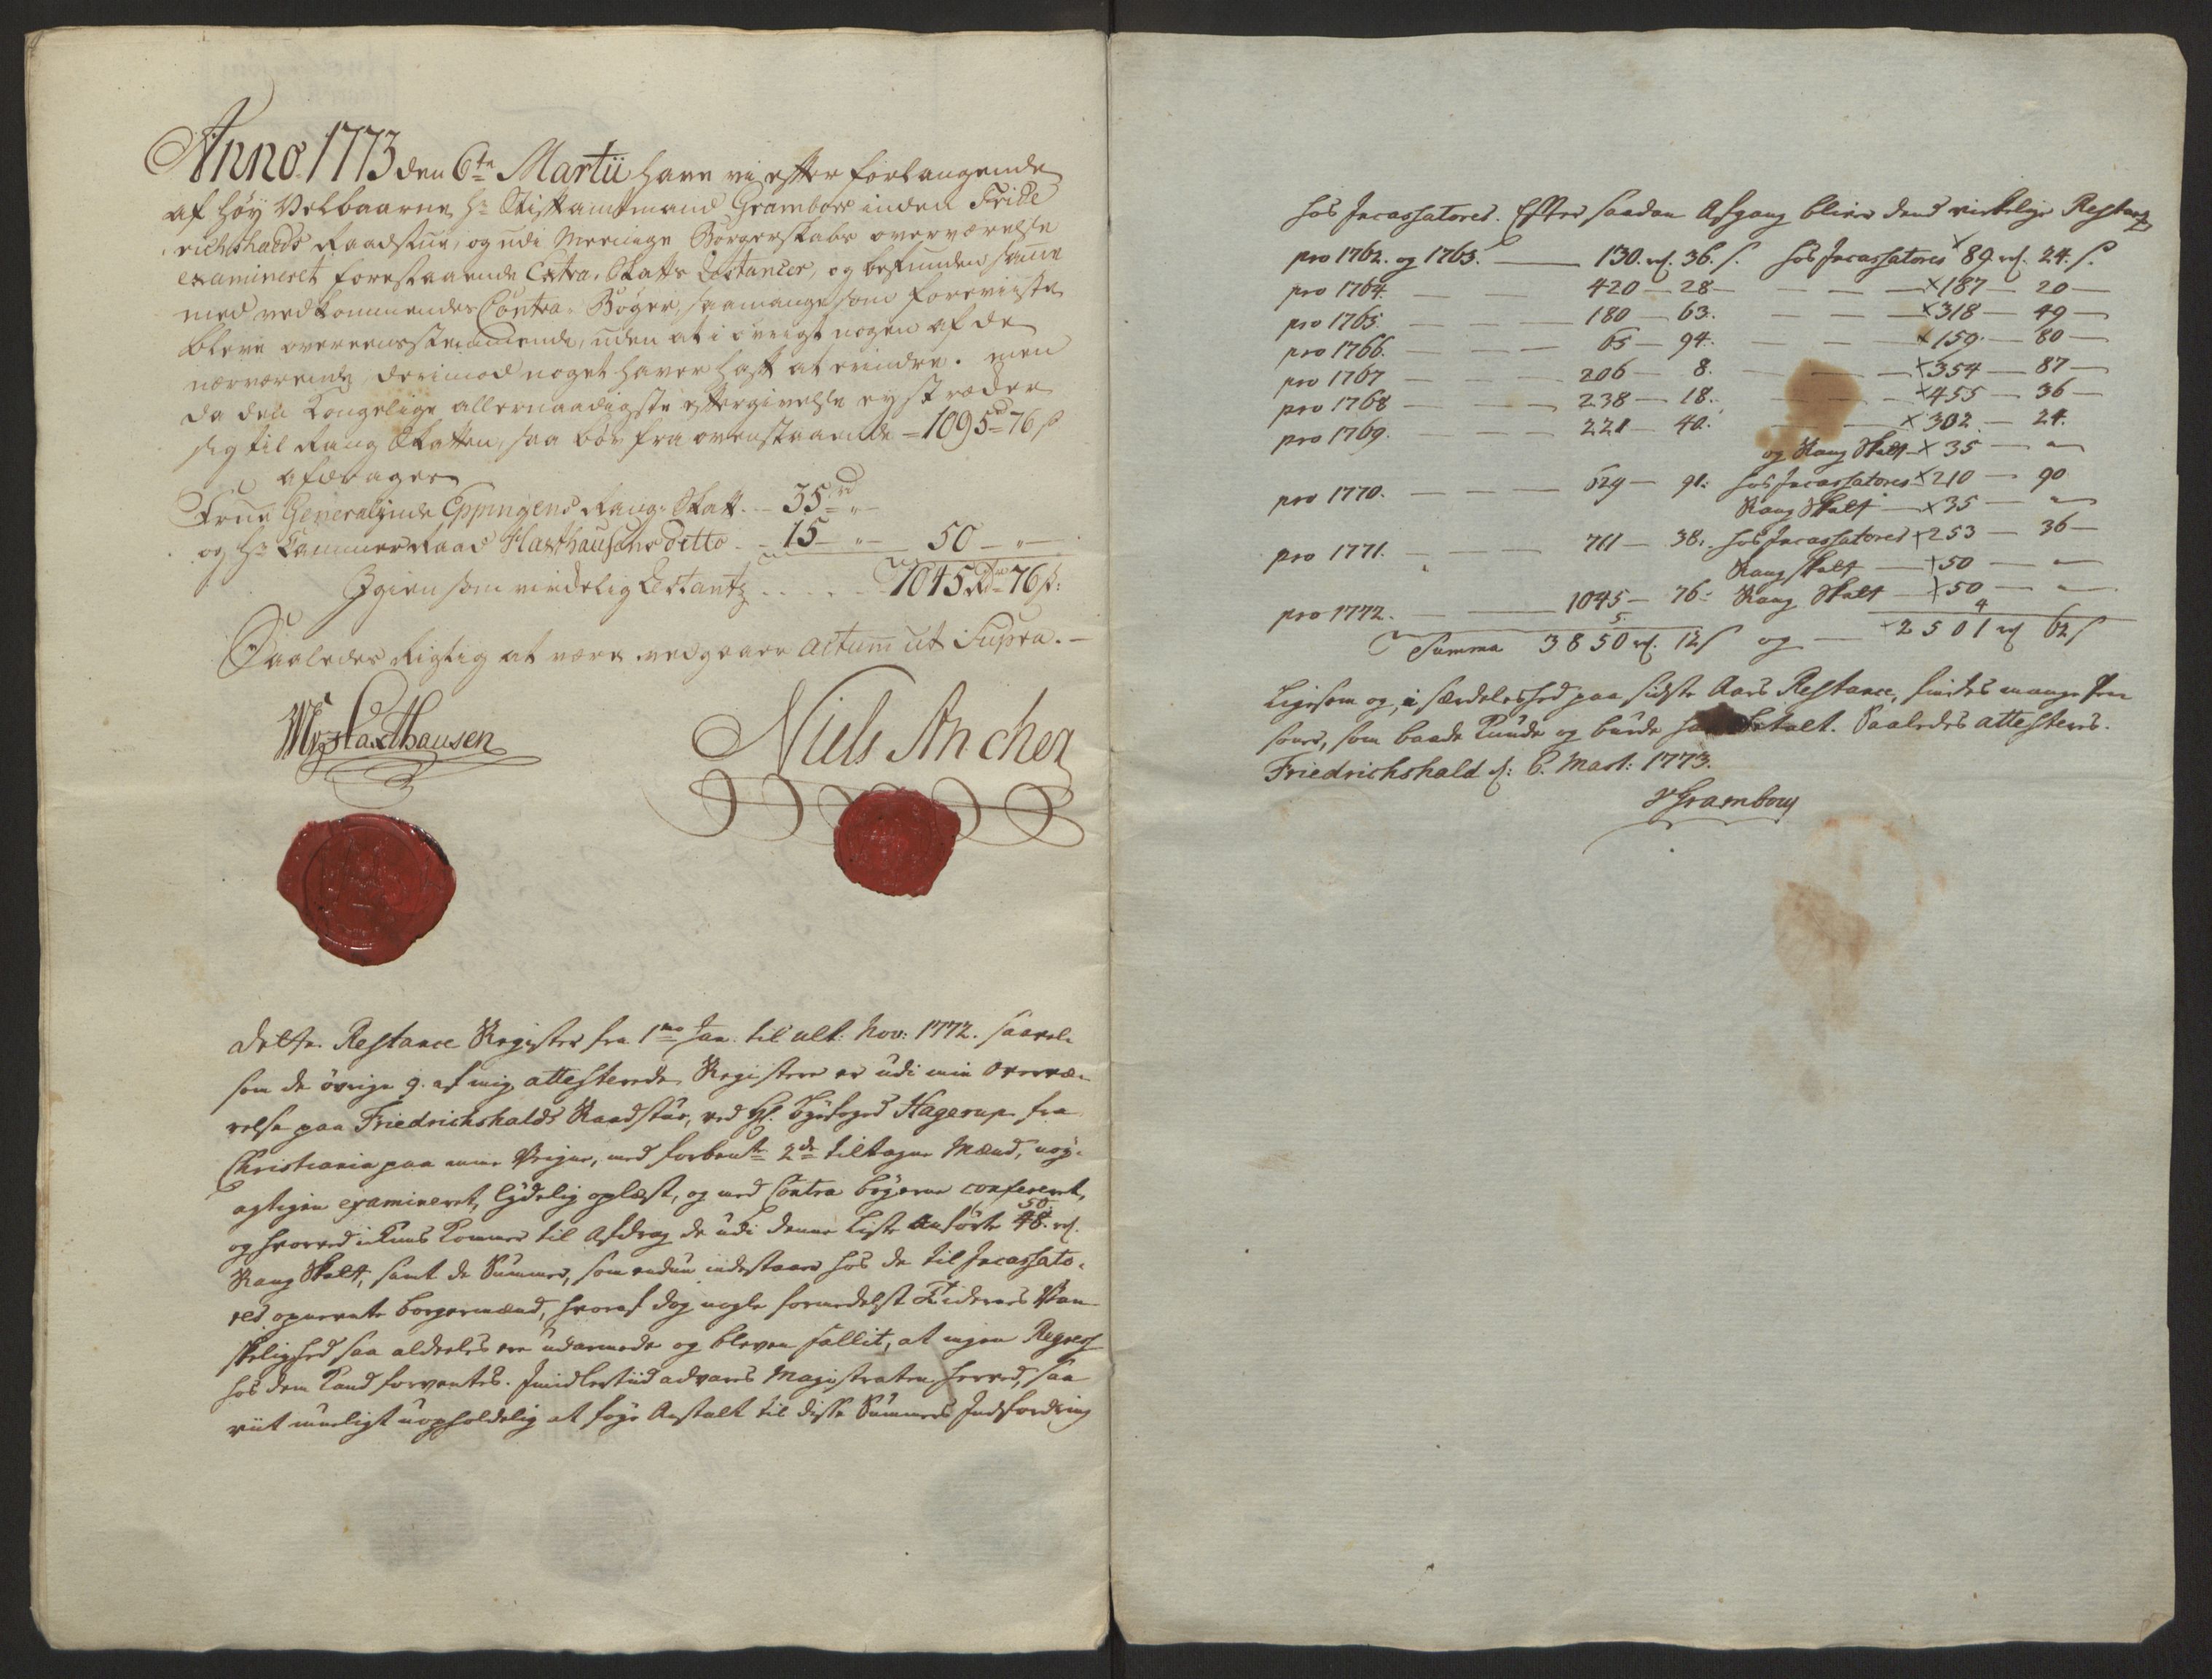 Anno 1773 den 6te Martii have vi efter forlangende
af Høy Velbaarne Hr Stiftamtmand Grambow inden Fride
richshalds Raadstue, og udi Meenige Borgerskabs overværelse
examineret forestaaende Extra-Skatts Restancer, og befunden samme
med vedkommendes Contra-Bøger, saamange som foreviiste
bleve overeensstemmende, uden at i øvrigt nogen af de
nærværende, derimod noget haver haft at erindre. men
da den Kongelige allernaadigste eftergivelse ey strækker
sig til Rang Skatten, saa bør fra ovenstaaende = 1095 rd 76 s
afdrages
Frue Generalinde Eppingens Rang-Skatt. - 35 rd "
og Hr Kammer Raad Maxthausens ditto - 15 - " - 50 - "
Igien som virkelig Restantz . . . . - 1045 Rdr 76 s:
Saaledes Rigtig at være vedgaaer actum ut Supra. -
Niels Ancher
dette Restance Register fra 1mo Jan. til ult: Nov: 1772. saavel-
som de øvrige 9. af mig attesterede Registere er udi min Overvæ-
relse paa Friedrichshalds Raadstue, ved Hr. Byefoged Hagerup fra
Christiania paa mine Vegne, med forbente 2de tiltagne Mænd, nøy-
agtigen examineret, lydelig oplæst, og med Contra bøgerne confereret,
og hvorved ikkuns kommer til Afdrag de udi denne Liste anførte 50. 48. rd.
Rang Skatt, samt de Summer, som endnu indestaaer hos de til Incassato-
res opnævnte borgermænd, hvoraf dog nogle formedelst Tidernes Van-
skelighed saa aldeeles ere udarmede og bleven fallit, at ingen Regress
hos dem kand forventes. Imidlertiid advares Magistraten herved, saa
viit mueligt uopholdelig at føye Anstalt til disse Summers Indfordring
hos Incassatores. Efter saadan Afgang bliver dend virkelige Restantz
pro 1762. og 1763. — 130. rd. 36. s. hos Incassatores × 89 rd. 24. s.
pro 1764. — 420 — 28 — × 187 — 20 —
pro 1765. — 180 — 63. — × 318 — 49 —
pro 1766. — 65 — 94. — × 159 — 80 —
pro 1767 — 206 — 8. — × 354 — 87 —
pro 1768 — 238 — 18. — × 455 — 36 —
pro 1769. — 221 — 40. — × 302 — 24.
og Rang Skatt × 35 — "
pro 1770. — 629 — 91. hos Incassatores × 210 — 90
Rang Skatt — × 35 — "
pro 1771. — 711 — 38. hos Incassatores × 253 — 36 —
Rang Skatt — × 50 — "
pro 1772. — 1045 — 76 - Rang Skatt — × 50 — "
Summa 3850 rd. 12 s og — 2501 rd 62 s
Ligesom og, i særdeleshed paa sidste Aars Restance, findes mange Per
soner, som baade kunde og burde betalt. Saaledes attesteres.
Friedrichshald d: 6. Mart: 1773.
v Grambow